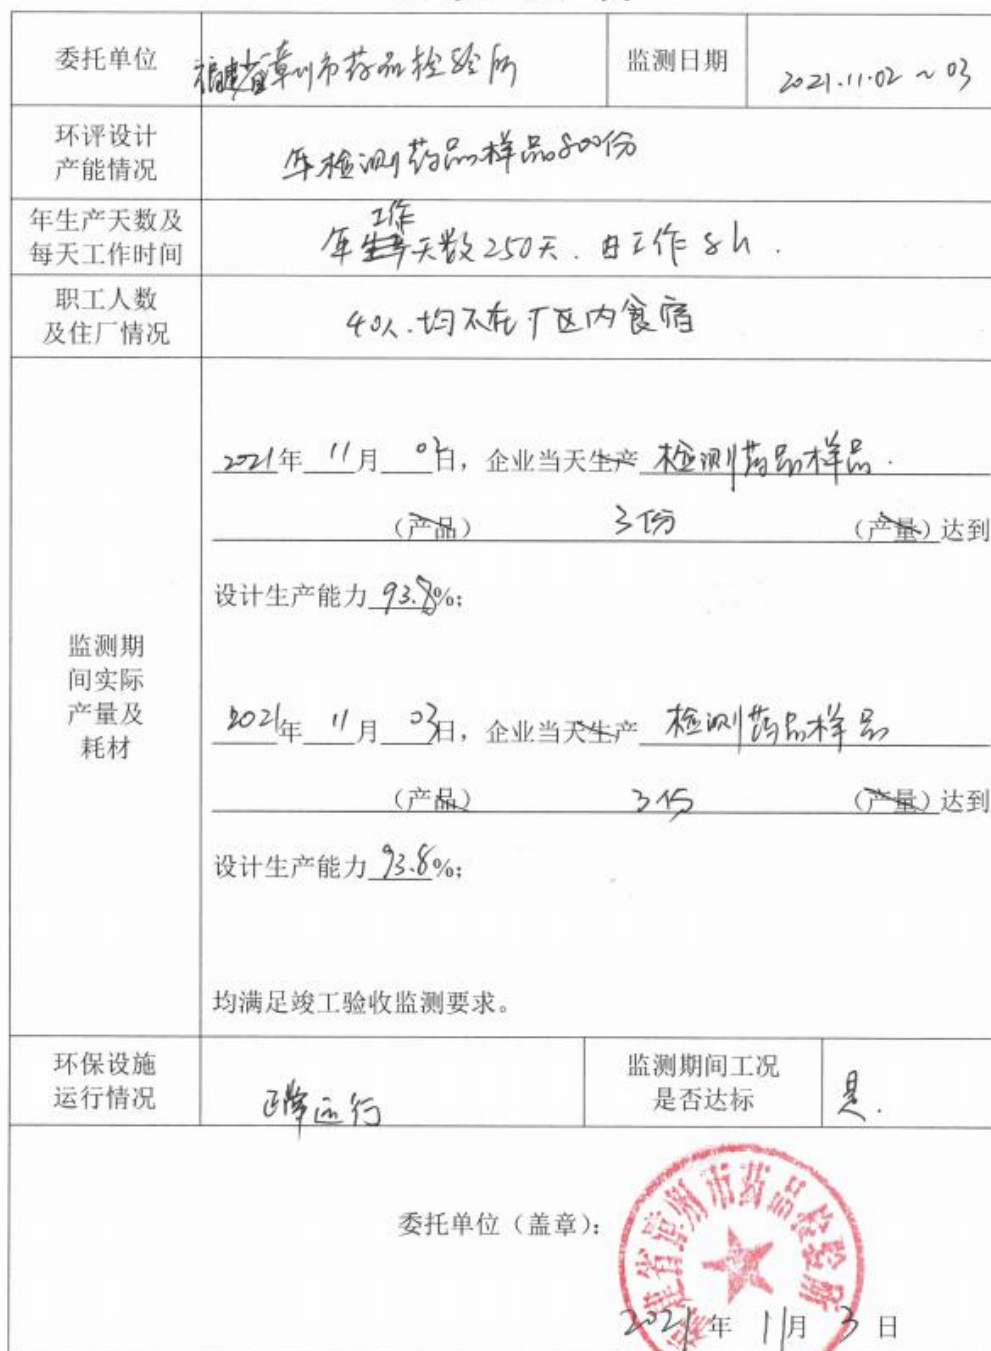 委托单位 福建省漳州市药品检验所 监测日期 2021.11.02~03
环评设计
产能情况 年检测药品样品800份
年生产天数及
每天工作时间 年生产工作天数250天.日工作8h.
职工人数
及住厂情况 40人.均不在厂区内食宿
监测期
间实际
产量及
耗材
2021年 11月 02日，企业当天生产 检测药品样品.
（产品） 3份 （产量）达到
设计生产能力 93.8%;
2021年 11月 03日，企业当天生产 检测药品样品
（产品） 3份 （产量）达到
设计生产能力 93.8%;
均满足竣工验收监测要求。
环保设施
运行情况 正常运行
监测期间工况
是否达标 是.
委托单位（盖章）：
福建省漳州市药品检验所
2021年 11月 3日